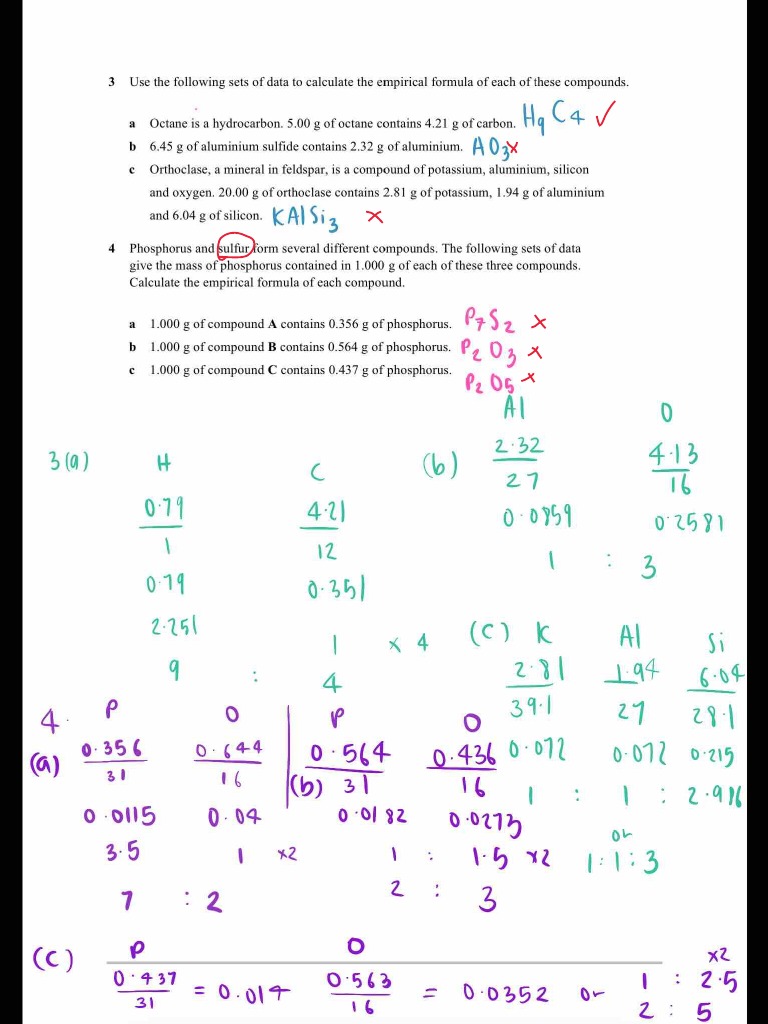 3 Use the following sets of data to calculate the empirical formula of each of these compounds.
a Octane is a hydrocarbon. 5.00 g of octane contains 4.21 g of carbon. H9 C4 ✓
b 6.45 g of aluminium sulfide contains 2.32 g of aluminium. AO3 x
c Orthoclase, a mineral in feldspar, is a compound of potassium, aluminium, silicon
and oxygen. 20.00 g of orthoclase contains 2.81 g of potassium, 1.94 g of aluminium
and 6.04 g of silicon. KAlSi3 x
4 Phosphorus and sulfur form several different compounds. The following sets of data
give the mass of phosphorus contained in 1.000 g of each of these three compounds.
Calculate the empirical formula of each compound.
a 1.000 g of compound A contains 0.356 g of phosphorus. P7S2 x
b 1.000 g of compound B contains 0.564 g of phosphorus. P2O3 x
c 1.000 g of compound C contains 0.437 g of phosphorus. P2O5 x
3(a) H C
0.79 4.21
1 12
0.79 0.351
2.251 1 x 4
9 : 4
(b) Al O
2.32 4.13
27 16
0.0859 0.2581
1 : 3
(c) K Al Si
2.81 1.94 6.04
39.1 27 28.1
0.072 0.072 0.215
1 : 1 : 2.986
or
1:1:3
4. P O
(a) 0.356 0.644
31 16
0.0115 0.04
3.5 1 x2
7 : 2
P O
0.564 0.436
(b) 31 16
0.0182 0.0273
1 : 1.5 x2
2 : 3
(c) P O
0.437 = 0.014 0.563 = 0.0352 or 1 : 2.5 x2
31 16
2 : 5